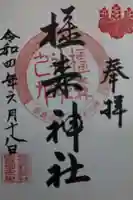 奉拝
橿森神社
令和四年六月十八日